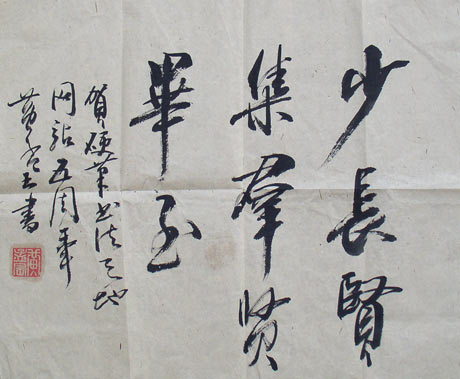 少長賢
集羣贤
畢至
賀硬筆书法天地
网站五周年
黄書